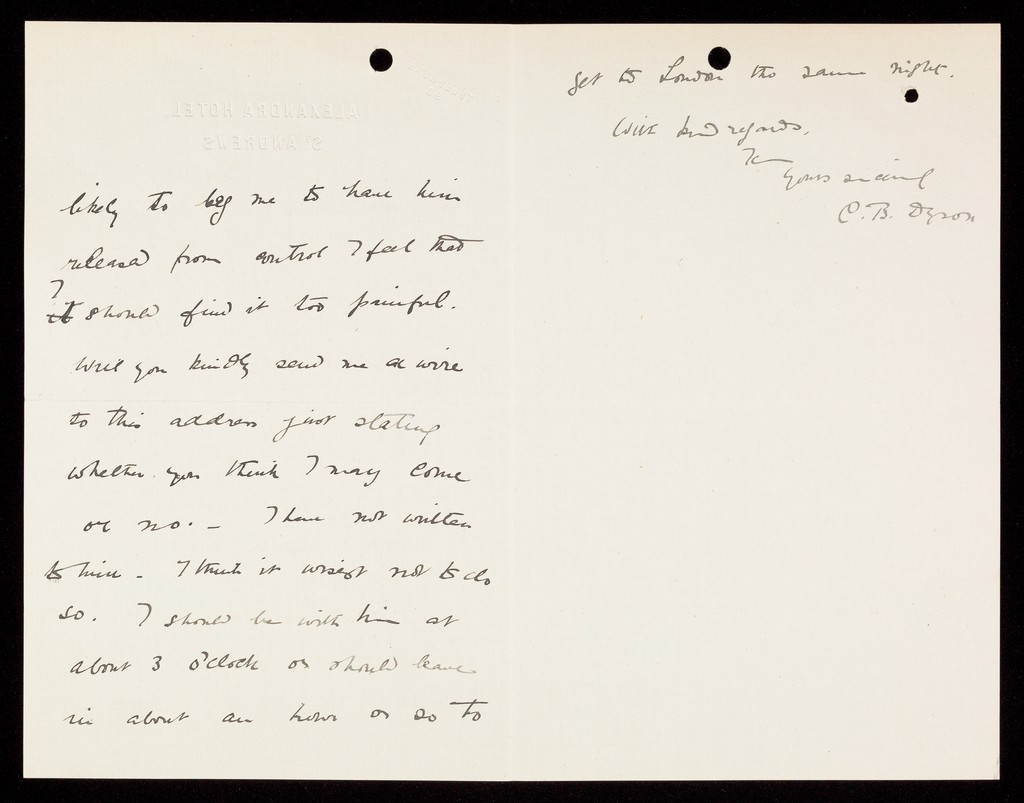 ALEXANDRA HOTEL,
ST ANDREWS
likely to beg me to have him
released from control I feel that
I should find it too painful.
Will you kindly send me a wire
to this address just stating
whether you think I may come
or no. - I have not written
to him - I think it wisest not to do
so. I should be with him at
about 3 o'clock & should leave
in about an hour or so to
get to London the same night.
With kind regards,
Yours sincerely
C. B. Dyson